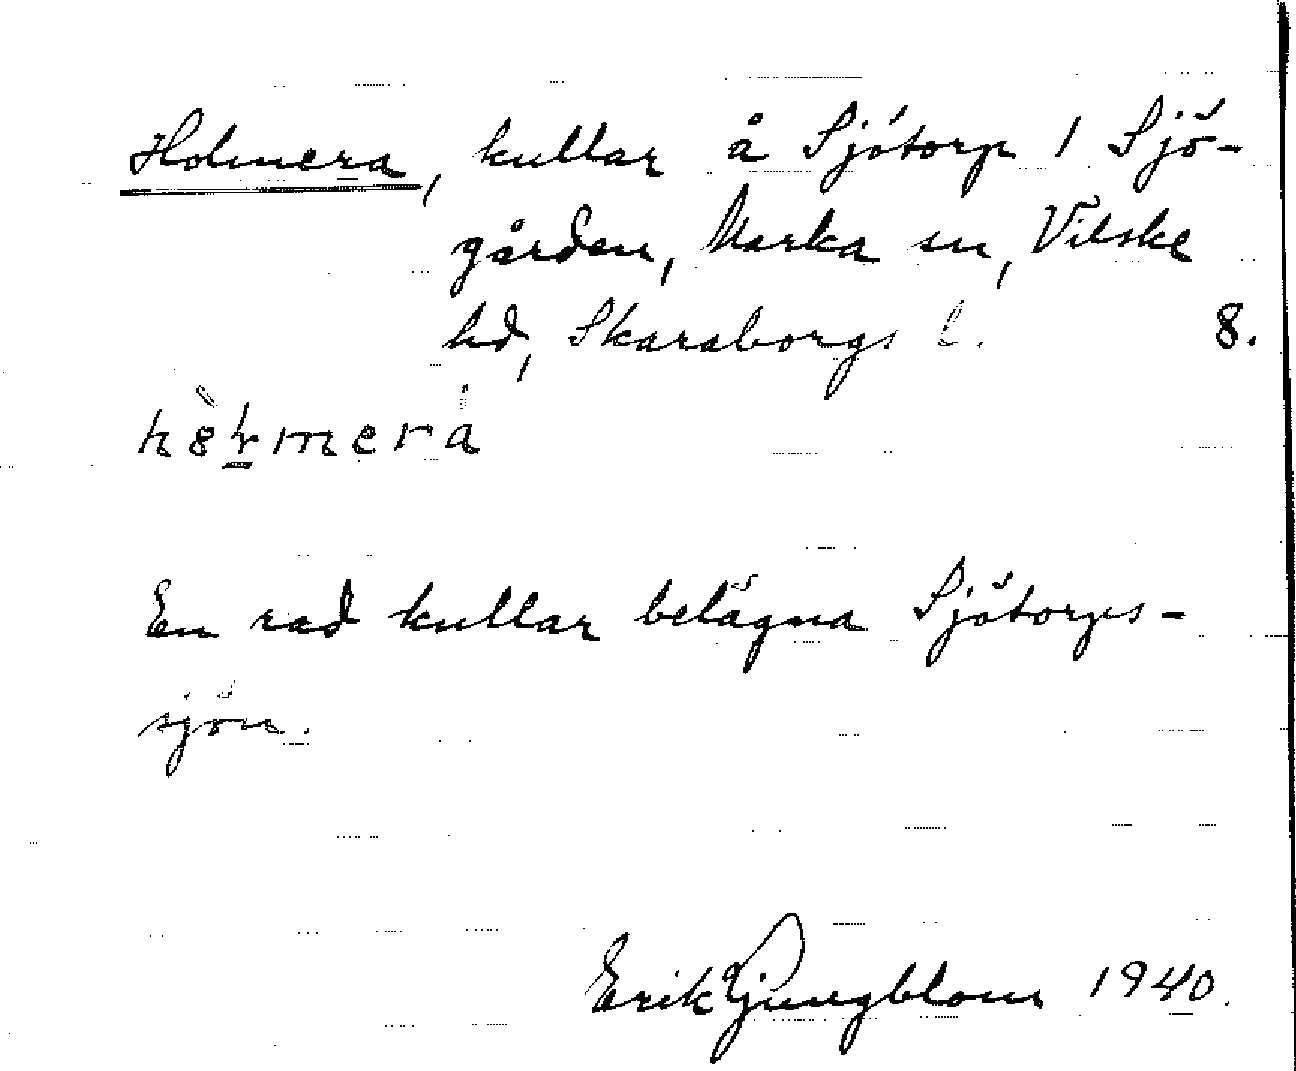 Holmera, kullar å Sjötorp 1 Sjö-
gården, Marka sn, Vilske
hd, Skaraborgs l. 8.
En rad kullar belägna Sjötorps-
sjön.
Erik Ljungblom 1940.